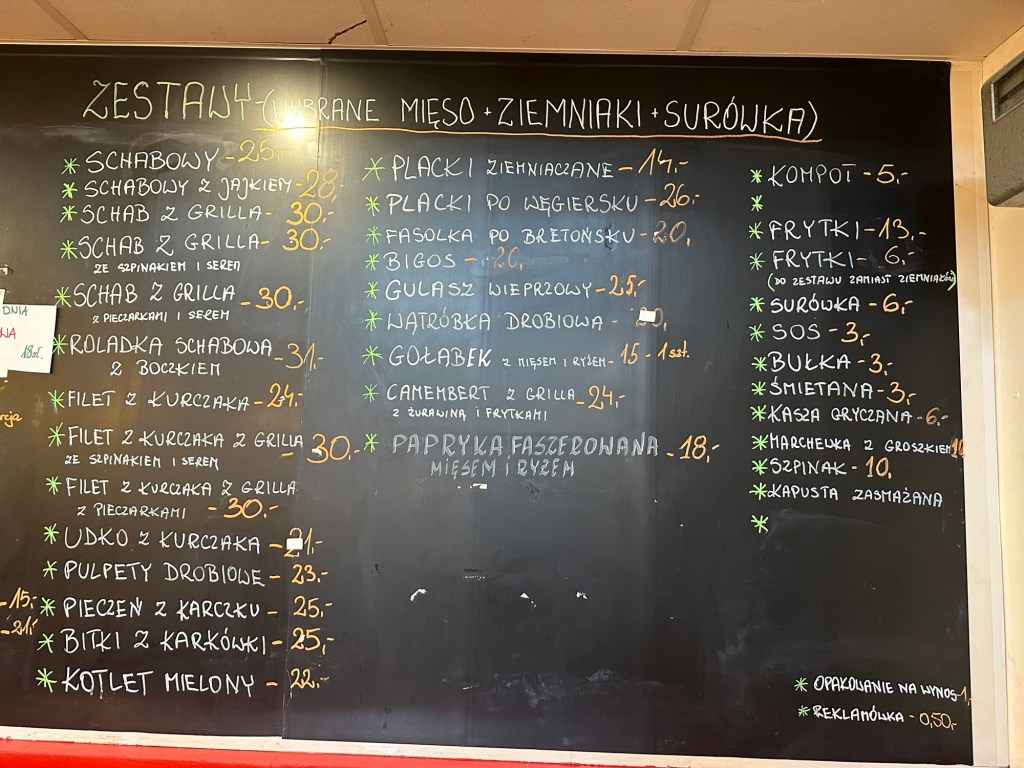 ZESTAWY-(WYBRANE MIĘSO + ZIEMNIAKI + SURÓWKA)
* SCHABOWY - 25.-
* SCHABOWY Z JAJKIEM - 28,-
* SCHAB Z GRILLA - 30.-
* SCHAB Z GRILLA - 30.-
ZE SZPINAKIEM I SEREM
* SCHAB Z GRILLA - 30.-
Z PIECZARKAMI I SEREM
* ROLADKA SCHABOWA - 31.-
Z BOCZKIEM
* FILET Z KURCZAKA - 24.-
* FILET Z KURCZAKA Z GRILLA - 30.-
ZE SZPINAKIEM I SEREM
* FILET Z KURCZAKA Z GRILLA
Z PIECZARKAMI - 30.-
* UDKO Z KURCZAKA - 1.-
* PULPETY DROBIOWE - 23.-
* PIECZEŃ Z KARCZKU - 25,-
* BITKI Z KARKÓWKI - 25,-
* KOTLET MIELONY - 22.-
* PLACKI ZIEMNIACZANE - 14.-
* PLACKI PO WĘGIERSKU - 26.-
* FASOLKA PO BRETOŃSKU - 20,
* BIGOS - 20,
* GULASZ WIEPRZOWY - 25.-
* WĄTRÓBKA DROBIOWA - 0,
* GOŁĄBEK Z MIĘSEM I RYŻEM - 15 - 1 szt.
* CAMEMBERT Z GRILLA - 24.-
Z ŻURAWINĄ I FRYTKAMI
* PAPRYKA FASZEROWANA - 18,-
MIĘSEM I RYŻEM
* KOMPOT - 5,-
*
* FRYTKI - 13.-
* FRYTKI - 6,-
(DO ZESTAWU ZAMIAST ZIEMNIAKÓW)
* SURÓWKA - 6,-
* SOS - 3,-
* BUŁKA - 3,-
* ŚMIETANA - 3,-
* KASZA GRYCZANA - 6.-
* MARCHEWKA Z GROSZKIEM
* SZPINAK - 10,
* KAPUSTA ZASMAŻANA
*
* OPAKOWANIE NA WYNOS - 1,
* REKLAMÓWKA - 0,50,-
DNIA
18zł.
- 15,-
- 21,-